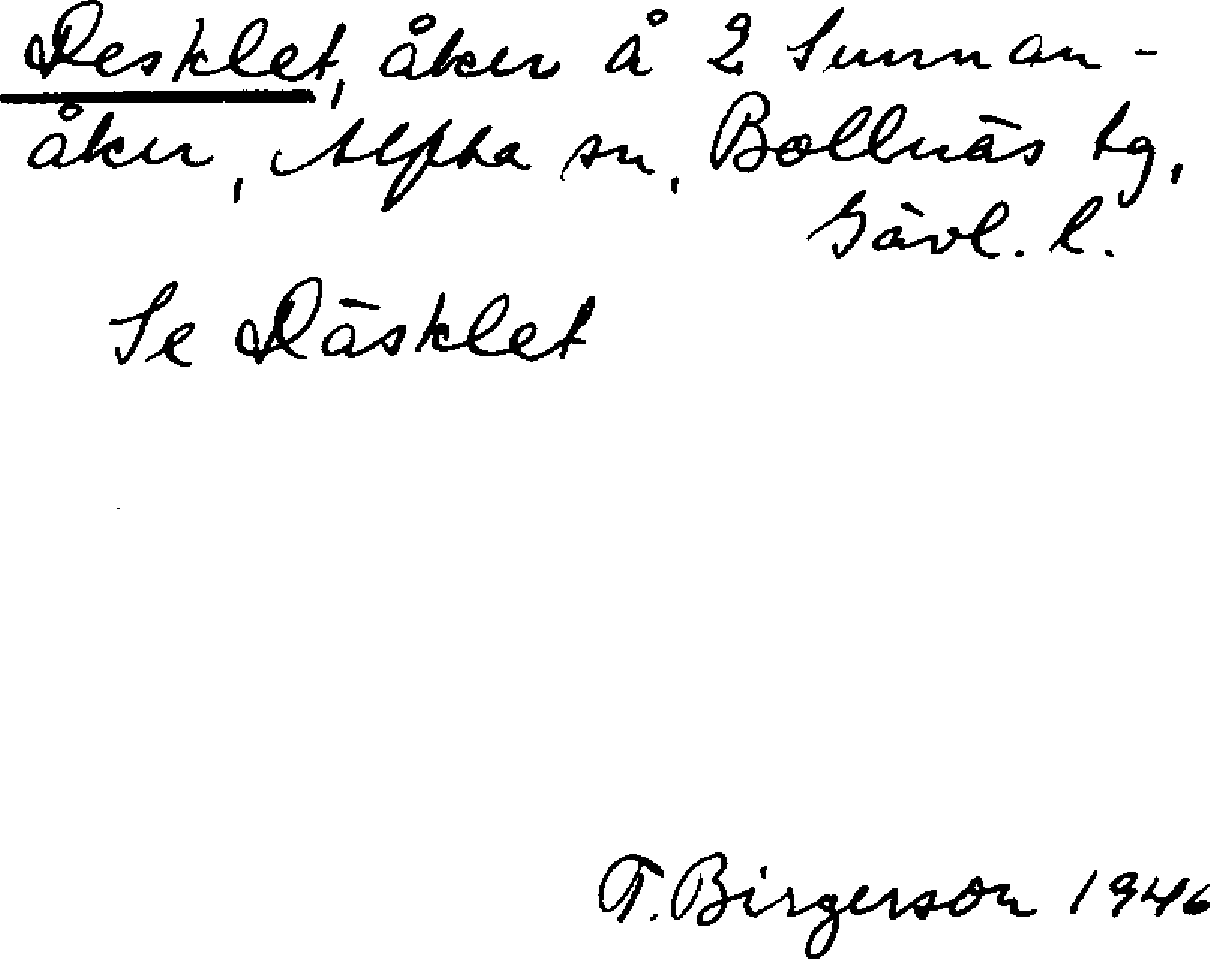 Resklet, åker å 2 Sunnan-
åker, Alfta sn, Bollnäs tg,
Gävl. l.
Se Räsklet
T. Birgerson 1946